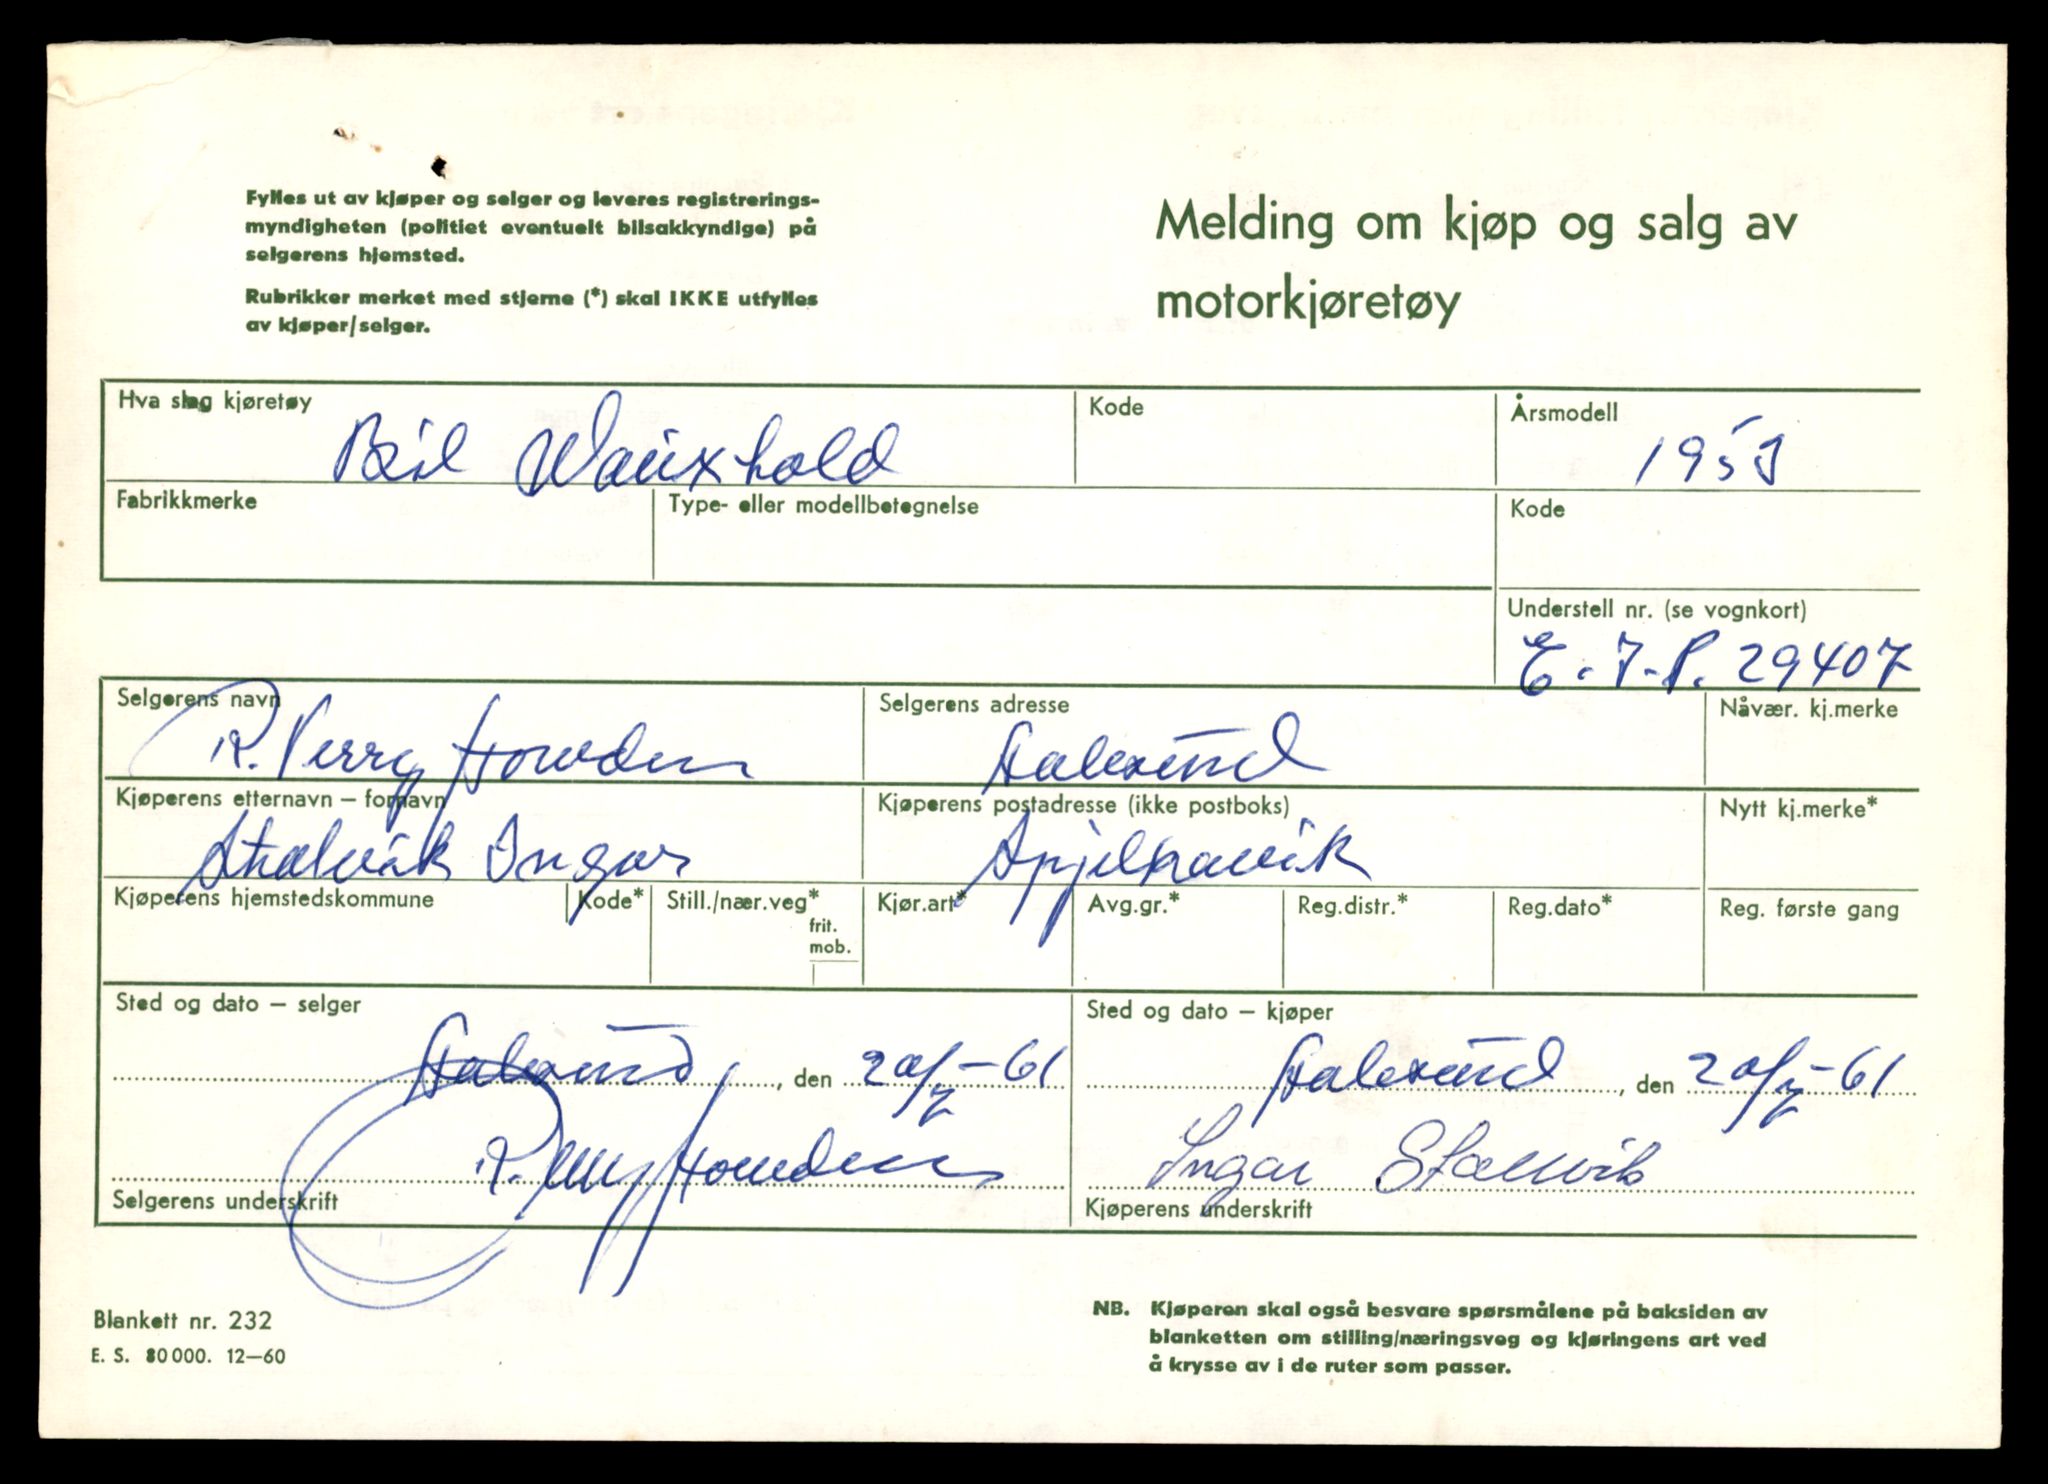 Fylles ut av kjøper og selger og leveres registrerings-
myndigheten (politiet eventuelt bilsakkyndige) på
selgerens hjemsted.
Rubrikker merket med stjerne (*) skal IKKE utfylles
av kjøper/selger.
Melding om kjøp og salg av
motorkjøretøy
Hva slag kjøretøy
Bil Wauxhold
Kode
Årsmodell
1953
Fabrikkmerke
Type- eller modellbetegnelse
Kode
Understell nr. (se vognkort)
E.I.P. 29407
Selgerens navn
R. Perry Howden
Selgerens adresse
Aalesund
Nåvær. kj.merke
Kjøperens etternavn – fornavn
Stalvik Ingar
Kjøperens postadresse (ikke postboks)
Spjelkavik
Nytt kj.merke*
Kjøperens hjemstedskommune
Kode*
Still./nær.veg*
frit.
mob.
Kjør.art*
Avg.gr.*
Reg.distr.*
Reg.dato*
Reg. første gang
Sted og dato – selger
Aalesund, den 20/7-61
Sted og dato – kjøper
Aalesund, den 20/7-61
R. Perry Howden
Selgerens underskrift
Ingar Stalvik
Kjøperens underskrift
Blankett nr. 232
E. S. 80 000. 12–60
NB. Kjøperen skal også besvare spørsmålene på baksiden av
blanketten om stilling/næringsveg og kjøringens art ved
å krysse av i de ruter som passer.